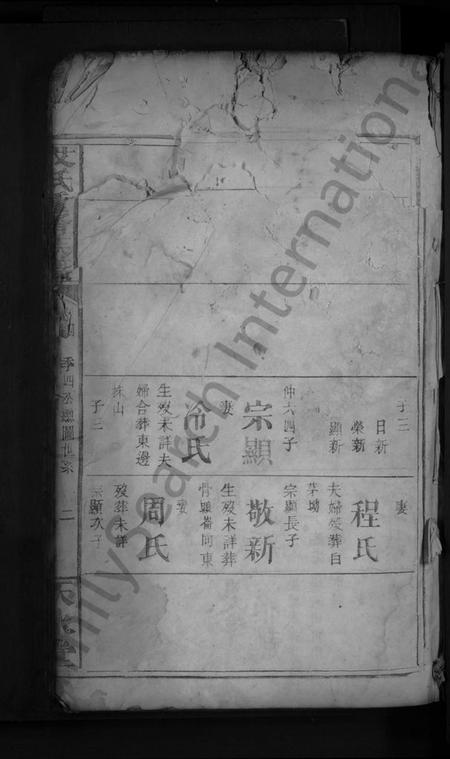 子三
日新
榮新
顯新
仲六四子
宗顯
妻
冷氏
生歿未詳夫
婦合葬東邊
株山
子三
妻
程氏
夫婦歿葬白
茅坳
宗顯長子
敬新
生歿未詳葬
骨顯崙同東
妻
周氏
歿葬未詳
宗顯次子
季四公總圖世系
二
FamilySearch International